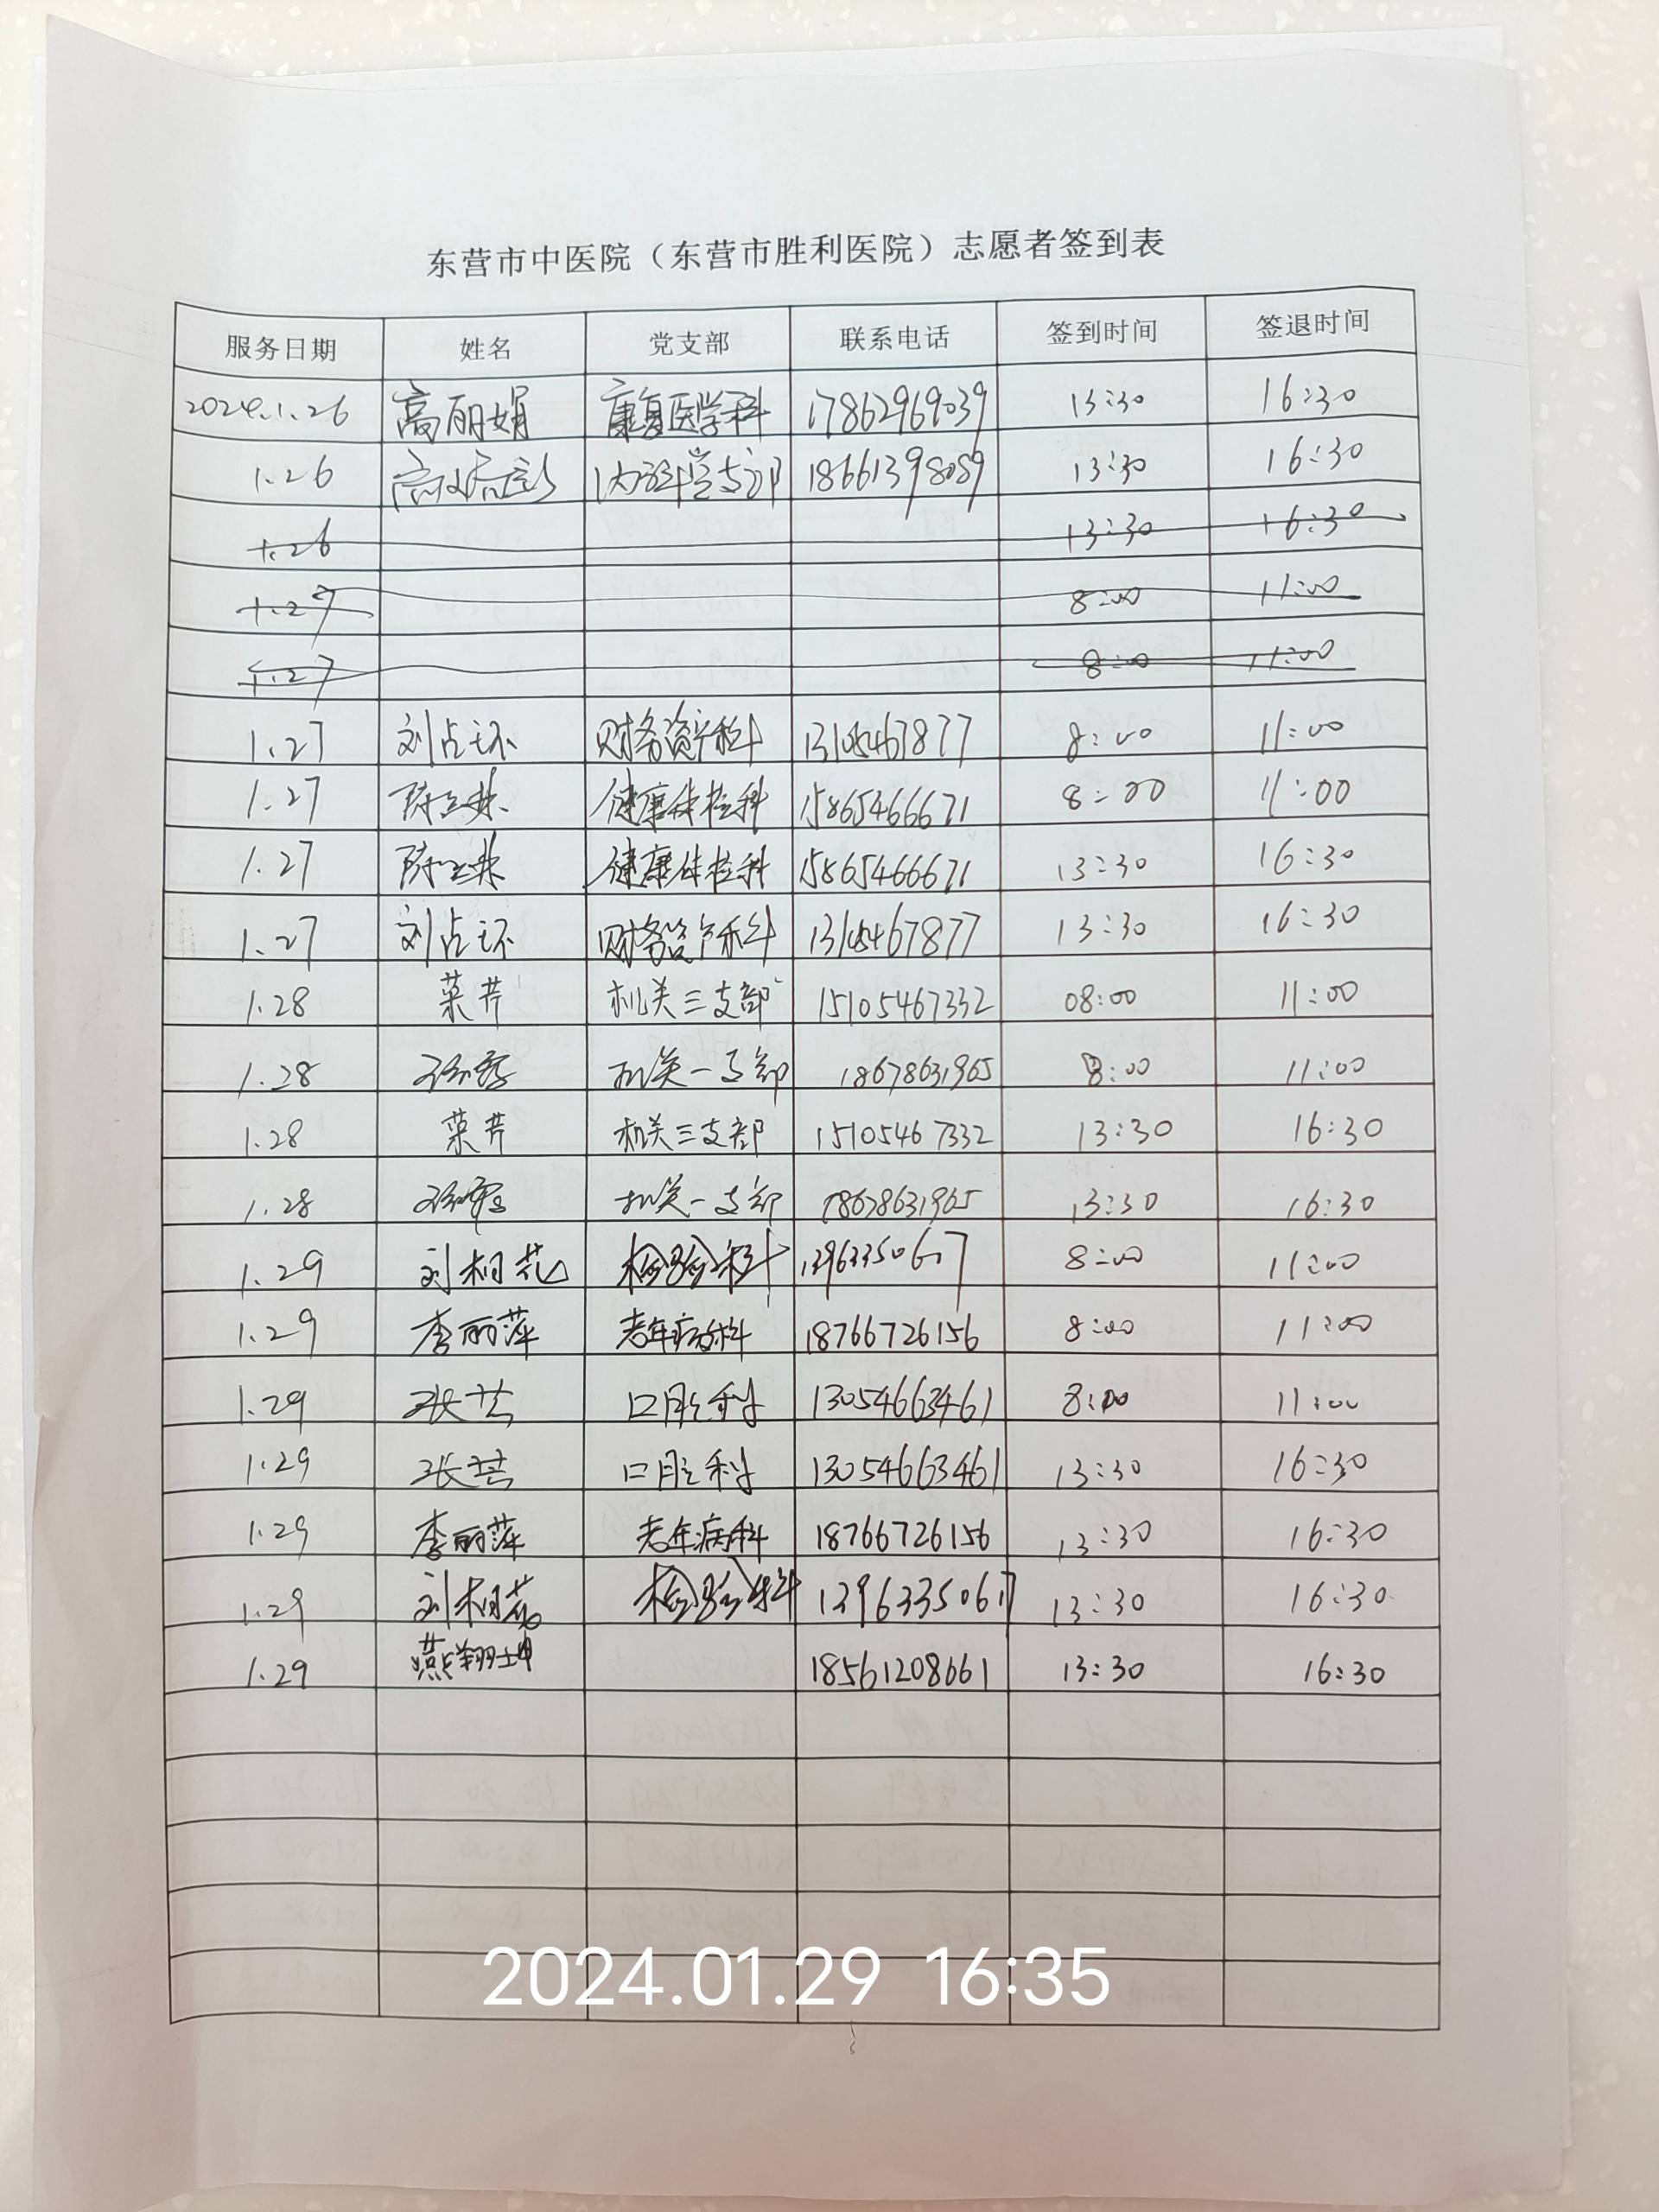 东营市中医院（东营市胜利医院）志愿者签到表
服务日期 姓名 党支部 联系电话 签到时间 签退时间
2024.1.26 高丽娟 康复医学科 17862969039 13:30 16:30
1.26 内科学支部 18661398089 13:30 16:30
1.26 13:30 16:30
1.27 8:00 11:00
1.27 8:00 11:00
1.27 刘占环 财务资产科 13105467877 8:00 11:00
1.27 健康体检科 15865466671 8:00 11:00
1.27 健康体检科 15865466671 13:30 16:30
1.27 刘占环 财务资产科 13105467877 13:30 16:30
1.28 菜芹 机关三支部 15105467332 08:00 11:00
1.28 机关一支部 18678631965 8:00 11:00
1.28 菜芹 机关三支部 15105467332 13:30 16:30
1.28 机关一支部 18678631965 13:30 16:30
1.29 刘相花 检验科 13963350617 8:00 11:00
1.29 李丽萍 老年病科 18766726156 8:00 11:00
1.29 张芸 口腔科 13054663461 8:00 11:00
1.29 张芸 口腔科 13054663461 13:30 16:30
1.29 李丽萍 老年病科 18766726156 13:30 16:30
1.29 刘相花 检验科 13963350617 13:30 16:30
1.29 燕翔坤 18561208661 13:30 16:30
2024.01.29 16:35